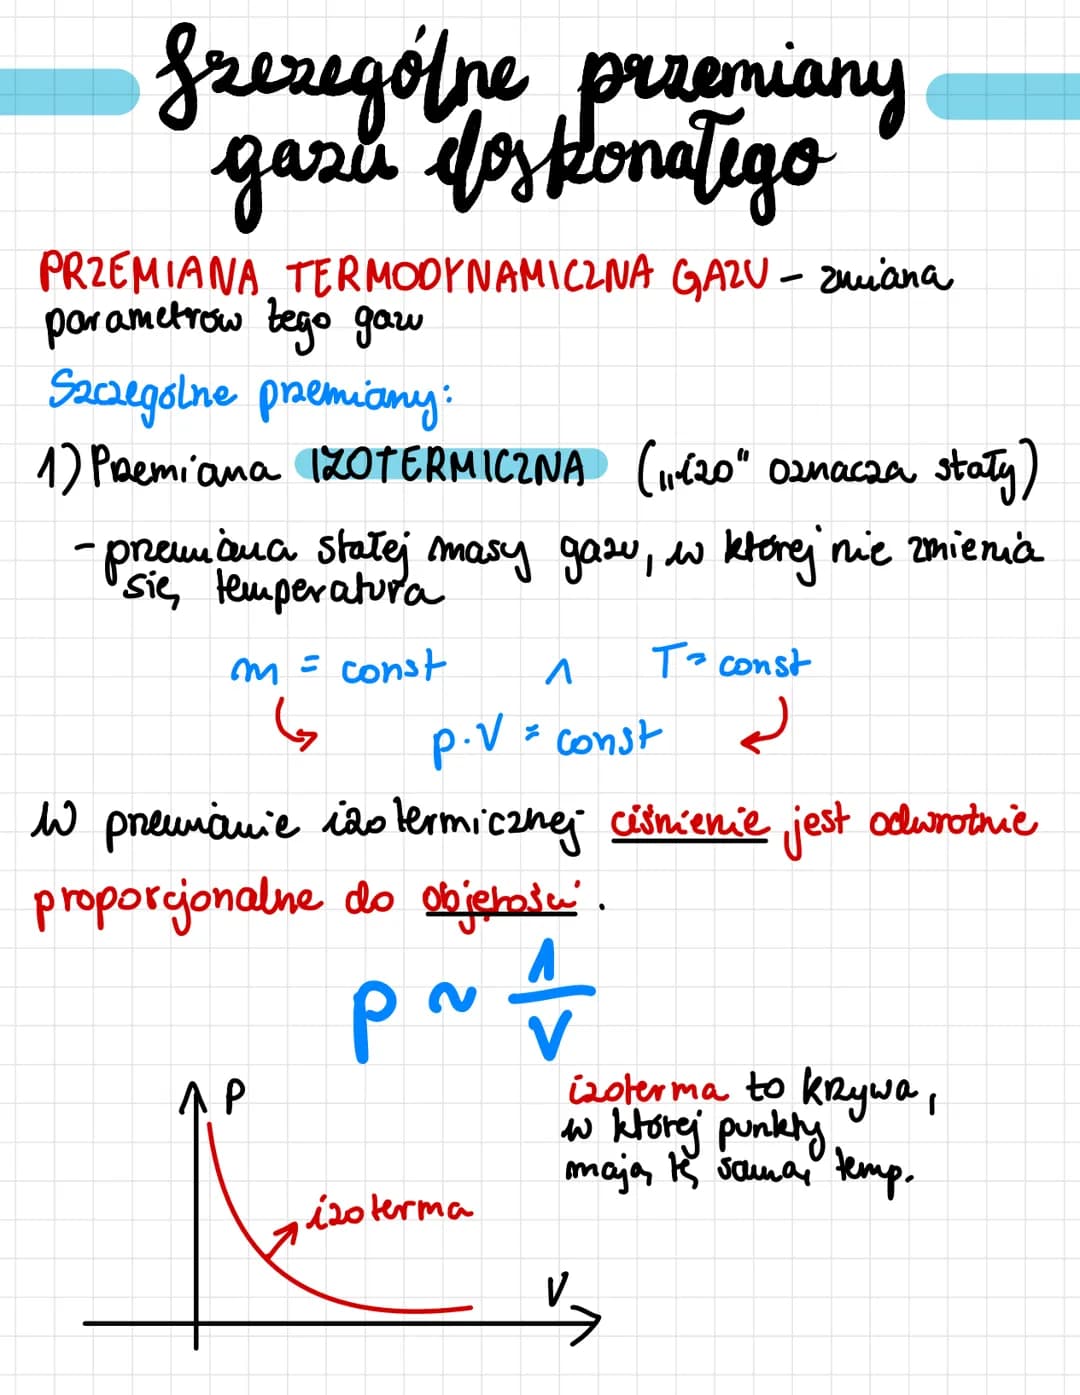 Szczególne przemiany
gazu doskonałego
PRZEMIANA TERMODYNAMICZNA GAZU - zmiana
parametrów tego gazu
Szczególne przemiany:
1) Przemiana IZOTERMICZNA („izo" oznacza stały)
- przemiana stałej masy gazu, w której nie zmienia
się temperatura
m = const ∧ T = const
p·V = const
W przemianie izotermicznej ciśnienie jest odwrotnie
proporcjonalne do objętości.
p ~ 1/V
P
izoterma to krzywa,
w której punkty
mają tę samą temp.
izoterma
V